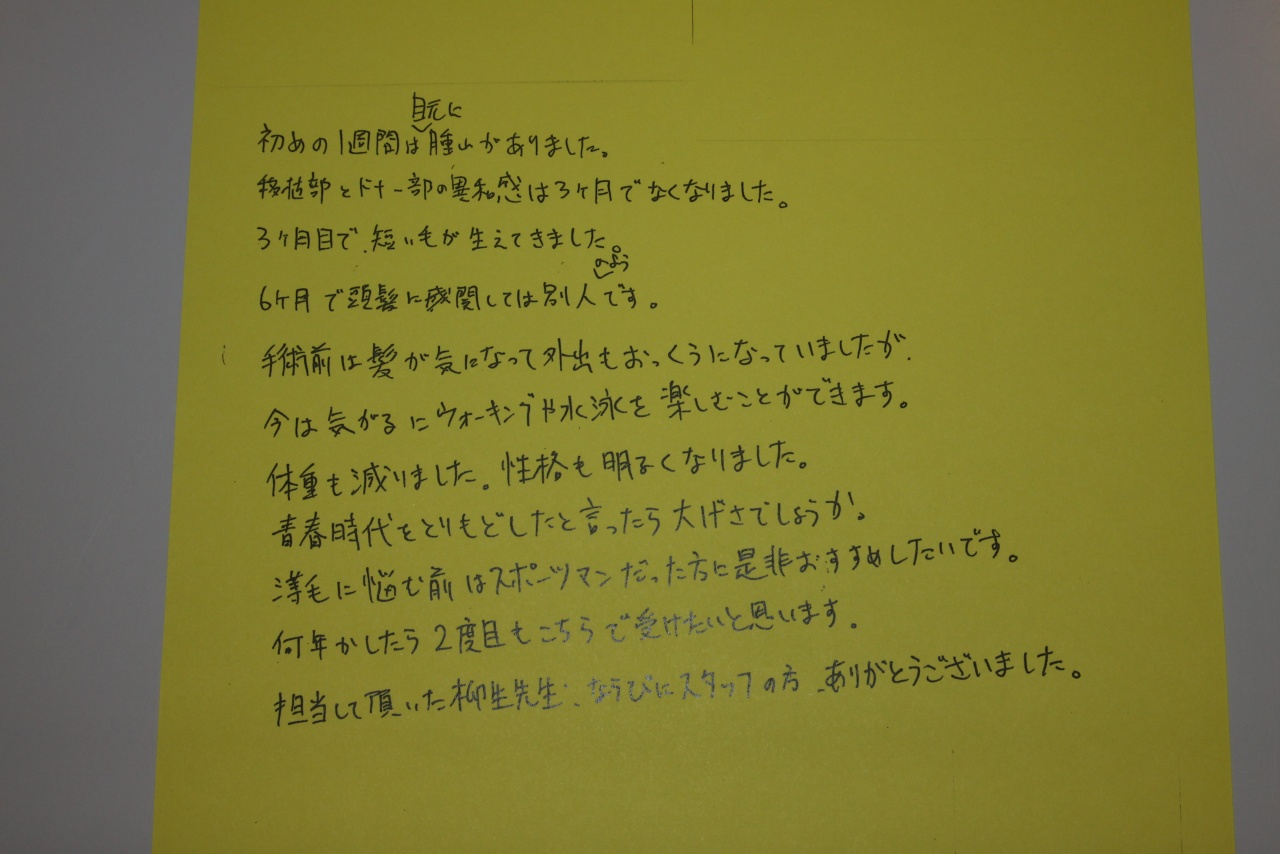 初めの1週間は目元に腫れがありました。
移植部とドナー部の異和感は3ヶ月でなくなりました。
3ヶ月目で、短い毛が生えてきました。
6ヶ月で頭髪に関しては別人のようです。
手術前は髪が気になって外出もおっくうになっていましたが、
今は気がるにウォーキングや水泳を楽しむことができます。
体重も減りました。性格も明るくなりました。
青春時代をとりもどしたと言ったら大げさでしょうか。
薄毛に悩む前はスポーツマンだった方に是非おすすめしたいです。
何年かしたら2度目もこちらで受けたいと思います。
担当して頂いた柳生先生、ならびにスタッフの方、ありがとうございました。